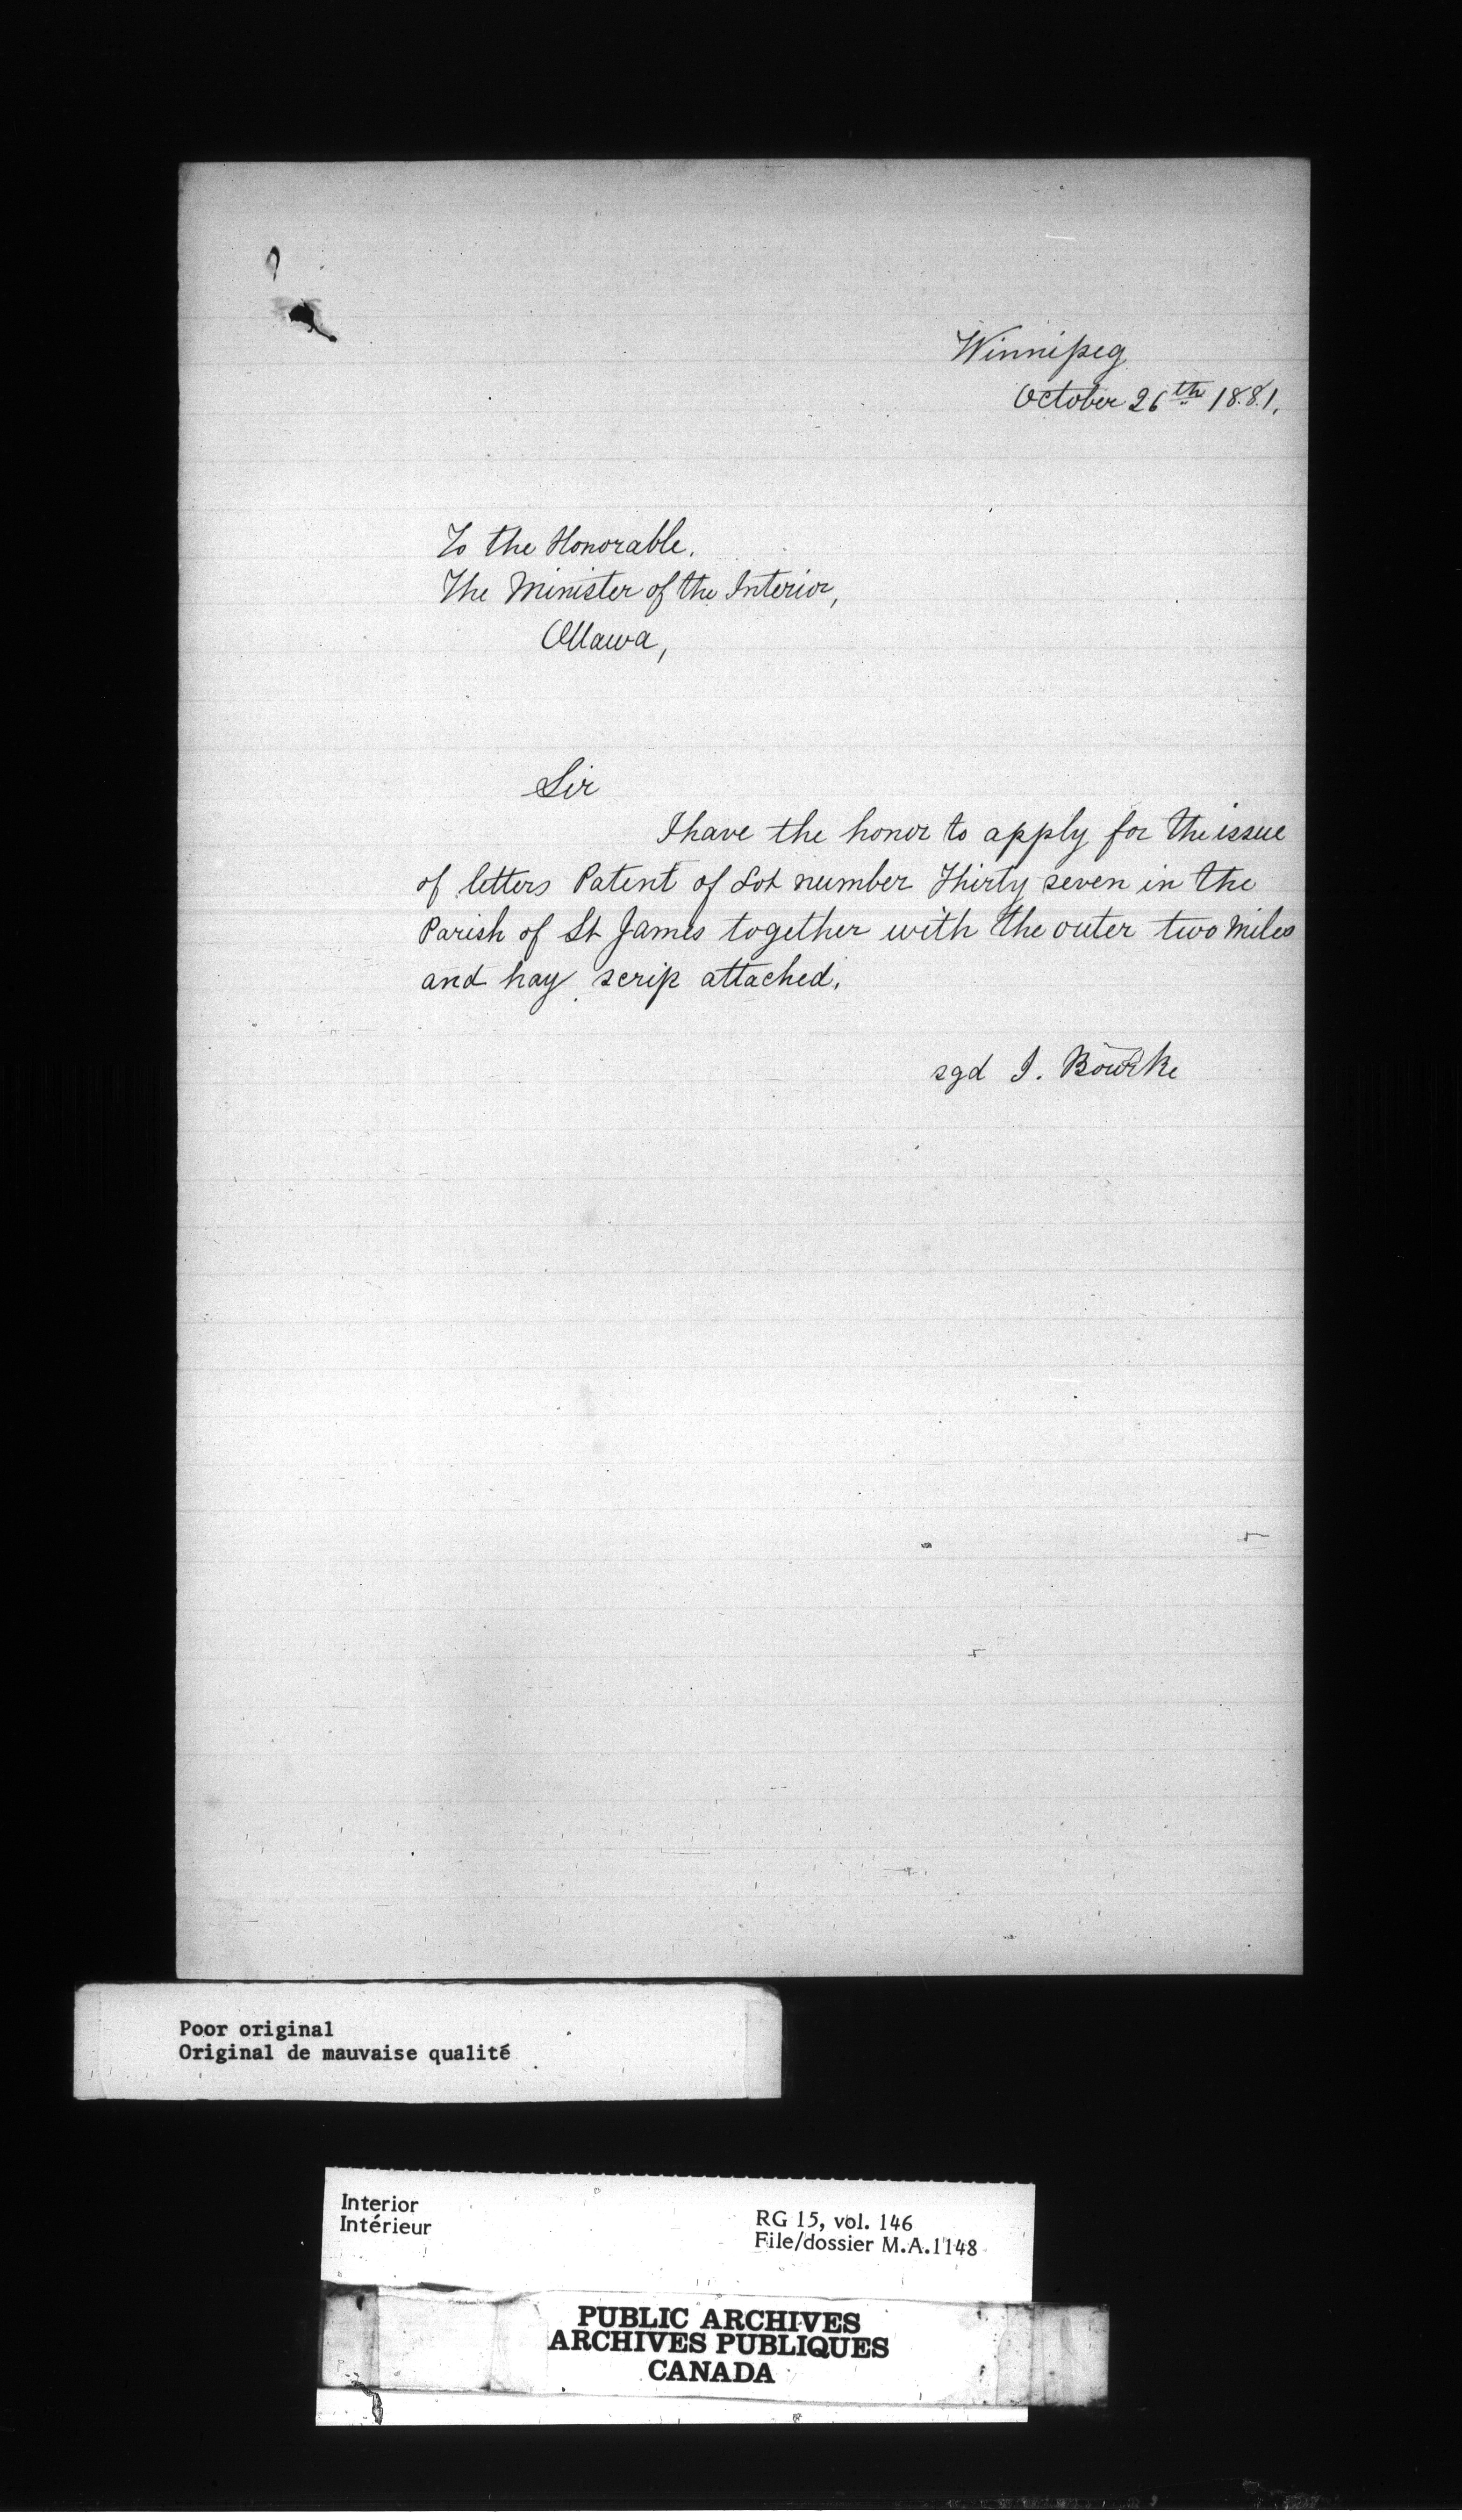 Winnipeg
October 26th 1881.
To the Honorable.
The Minister of the Interior,
Ottawa,
Sir
I have the honor to apply for the issue
of letters Patent of Lot number Thirty seven in the
Parish of St James together with the outer two miles
and hay scrip attached.
sgd J. Bourke
Poor original
Original de mauvaise qualité
Interior
Intérieur
RG 15, vol. 146
File/dossier M.A.1148
PUBLIC ARCHIVES
ARCHIVES PUBLIQUES
CANADA